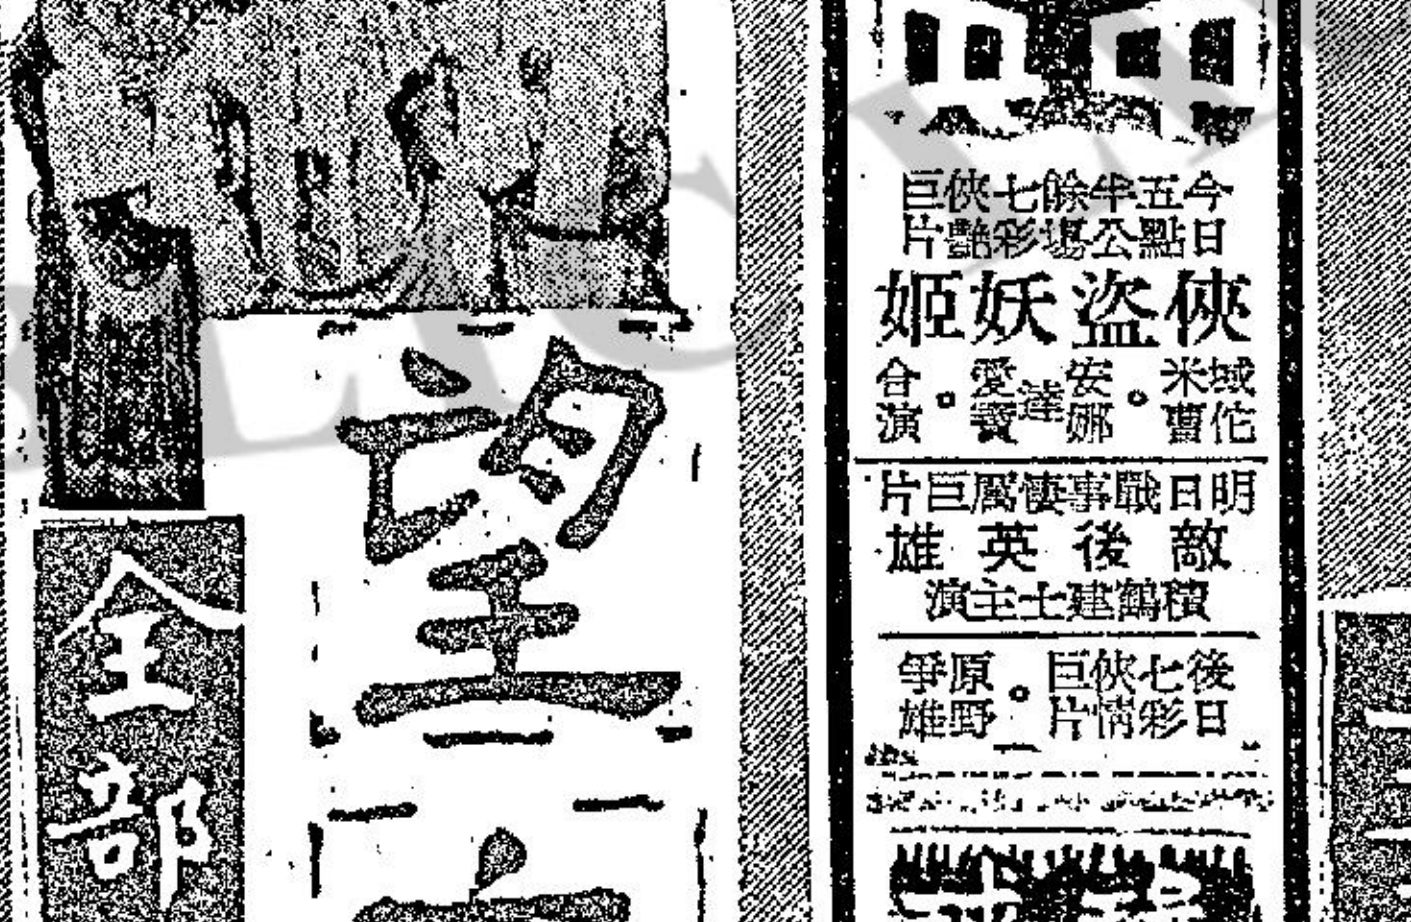 今日五點半公餘場七彩俠艷巨片
俠盜妖姬
域佗米曹。安娜達愛寶。合演
明日戰事悽厲巨片
敵後英雄
積鶴建士主演
後日七彩俠情巨片。原野爭雄
望
全部